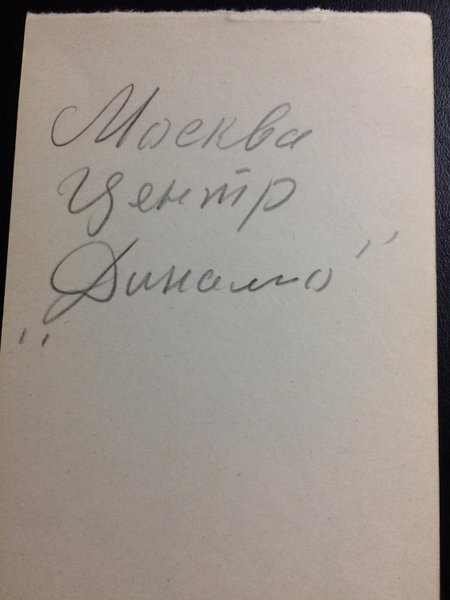 Москва
Центр
„Динамо"